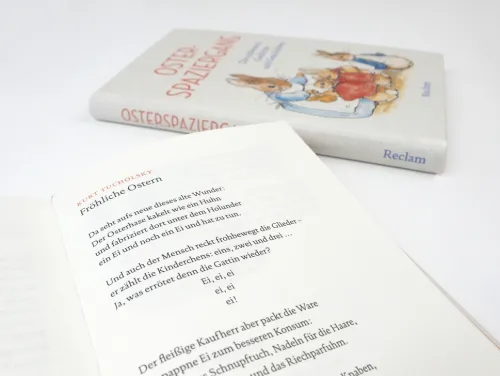 OSTER-
SPAZIERGANG
Reclam
OSTERSPAZIERGANG
Reclam
KURT TUCHOLSKY
Fröhliche Ostern
Da seht aufs neue dieses alte Wunder:
Der Osterhase kakelt wie ein Huhn
und fabriziert dort unter dem Holunder
ein Ei und noch ein Ei und hat zu tun.
Und auch der Mensch reckt frohbewegt die Glieder –
er zählt die Kinderchens: eins, zwei und drei …
Ja, was errötet denn die Gattin wieder?
Ei, ei, ei
ei, ei
ei!
Der fleißige Kaufherr aber packt die Ware
pappne Ei zum besseren Konsum:
Schnupftuch, Nadeln für die Haare,
und das Riechparfuhm.
Knaben,